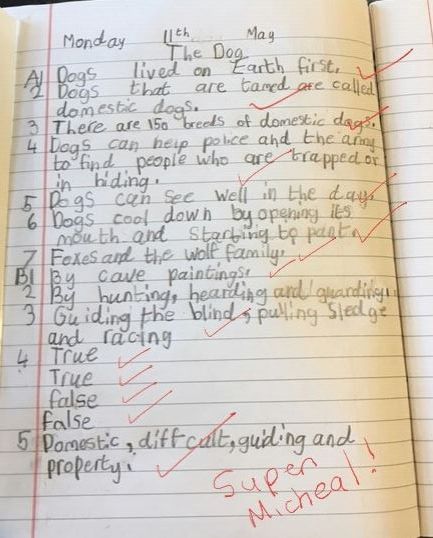 Monday 11th May
The Dog
A1 Dogs lived on Earth first.
2 Dogs that are tamed are called
domestic dogs.
3 There are 150 breeds of domestic dogs.
4 Dogs can help police and the army
to find people who are trapped or
in hiding.
5 Dogs can see well in the day.
6 Dogs cool down by opening its
mouth and starting to pant.
7 Foxes and the wolf family.
B1 By cave paintings.
2 By hunting, hearding and guarding.
3 Guiding the blind, pulling sledge
and racing
4 True
True
false
false
5 Domestic, difficult, guiding and
property.
Super
Micheal!